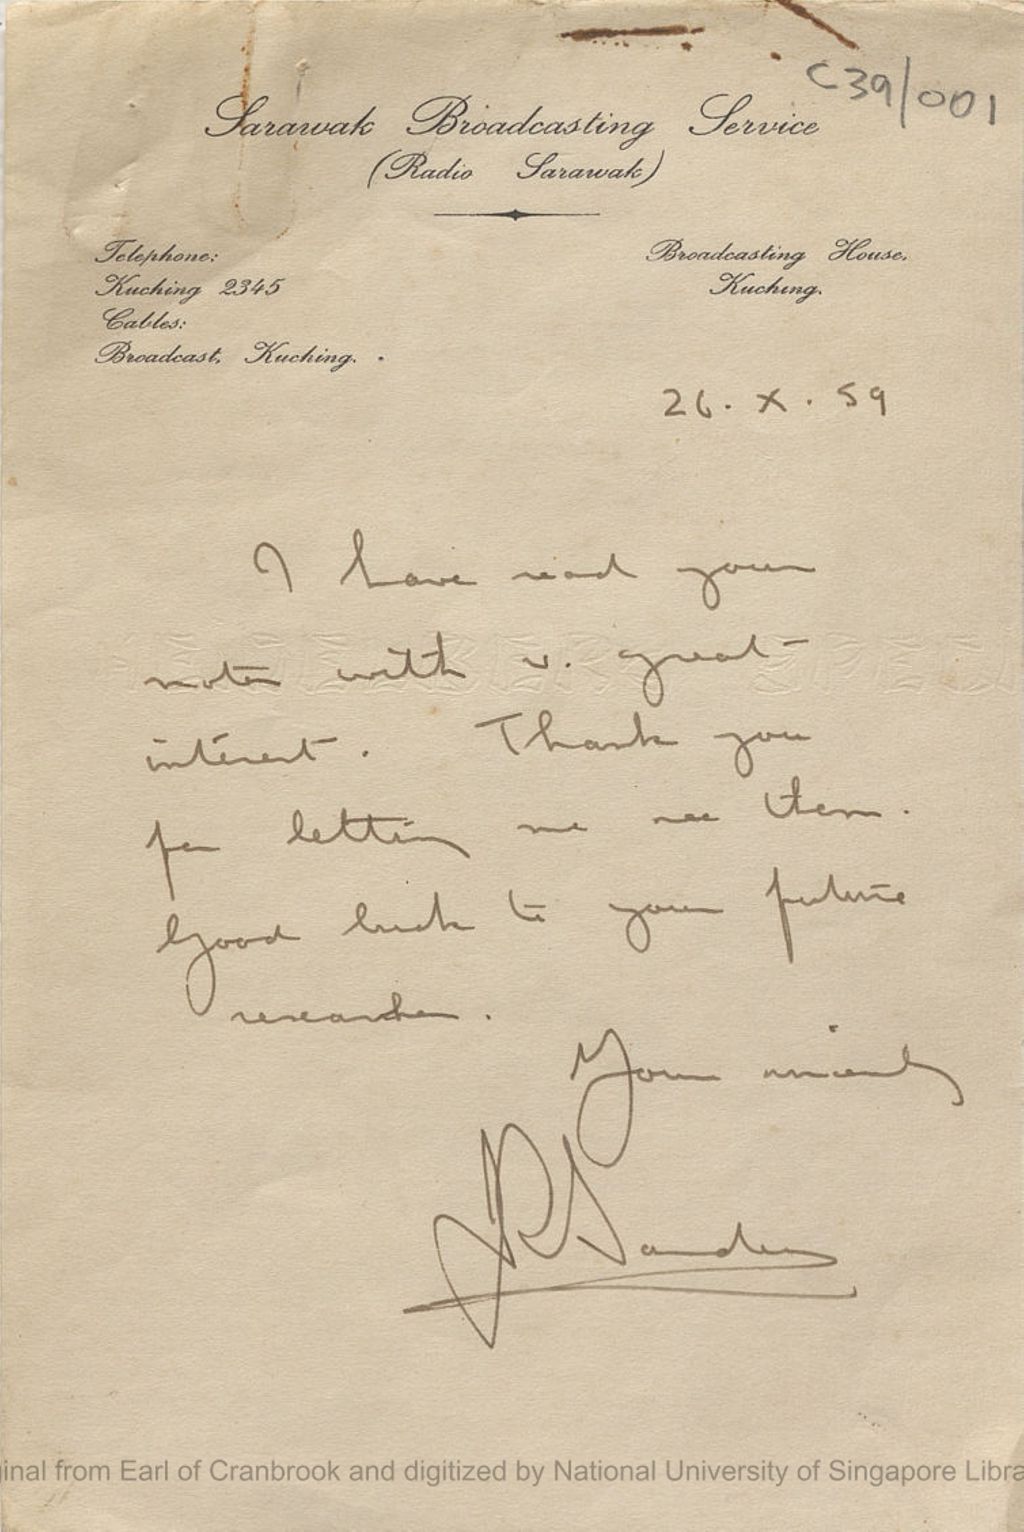 C39/001
Sarawak Broadcasting Service
(Radio Sarawak)
Telephone:
Kuching 2345
Cables:
Broadcast, Kuching.
Broadcasting House,
Kuching.
26. X. 59
I have read your
notes with v. great
interest. Thank you
for letting me see them.
Good luck to your future
researches.
Yours sincerely
ginal from Earl of Cranbrook and digitized by National University of Singapore Libra